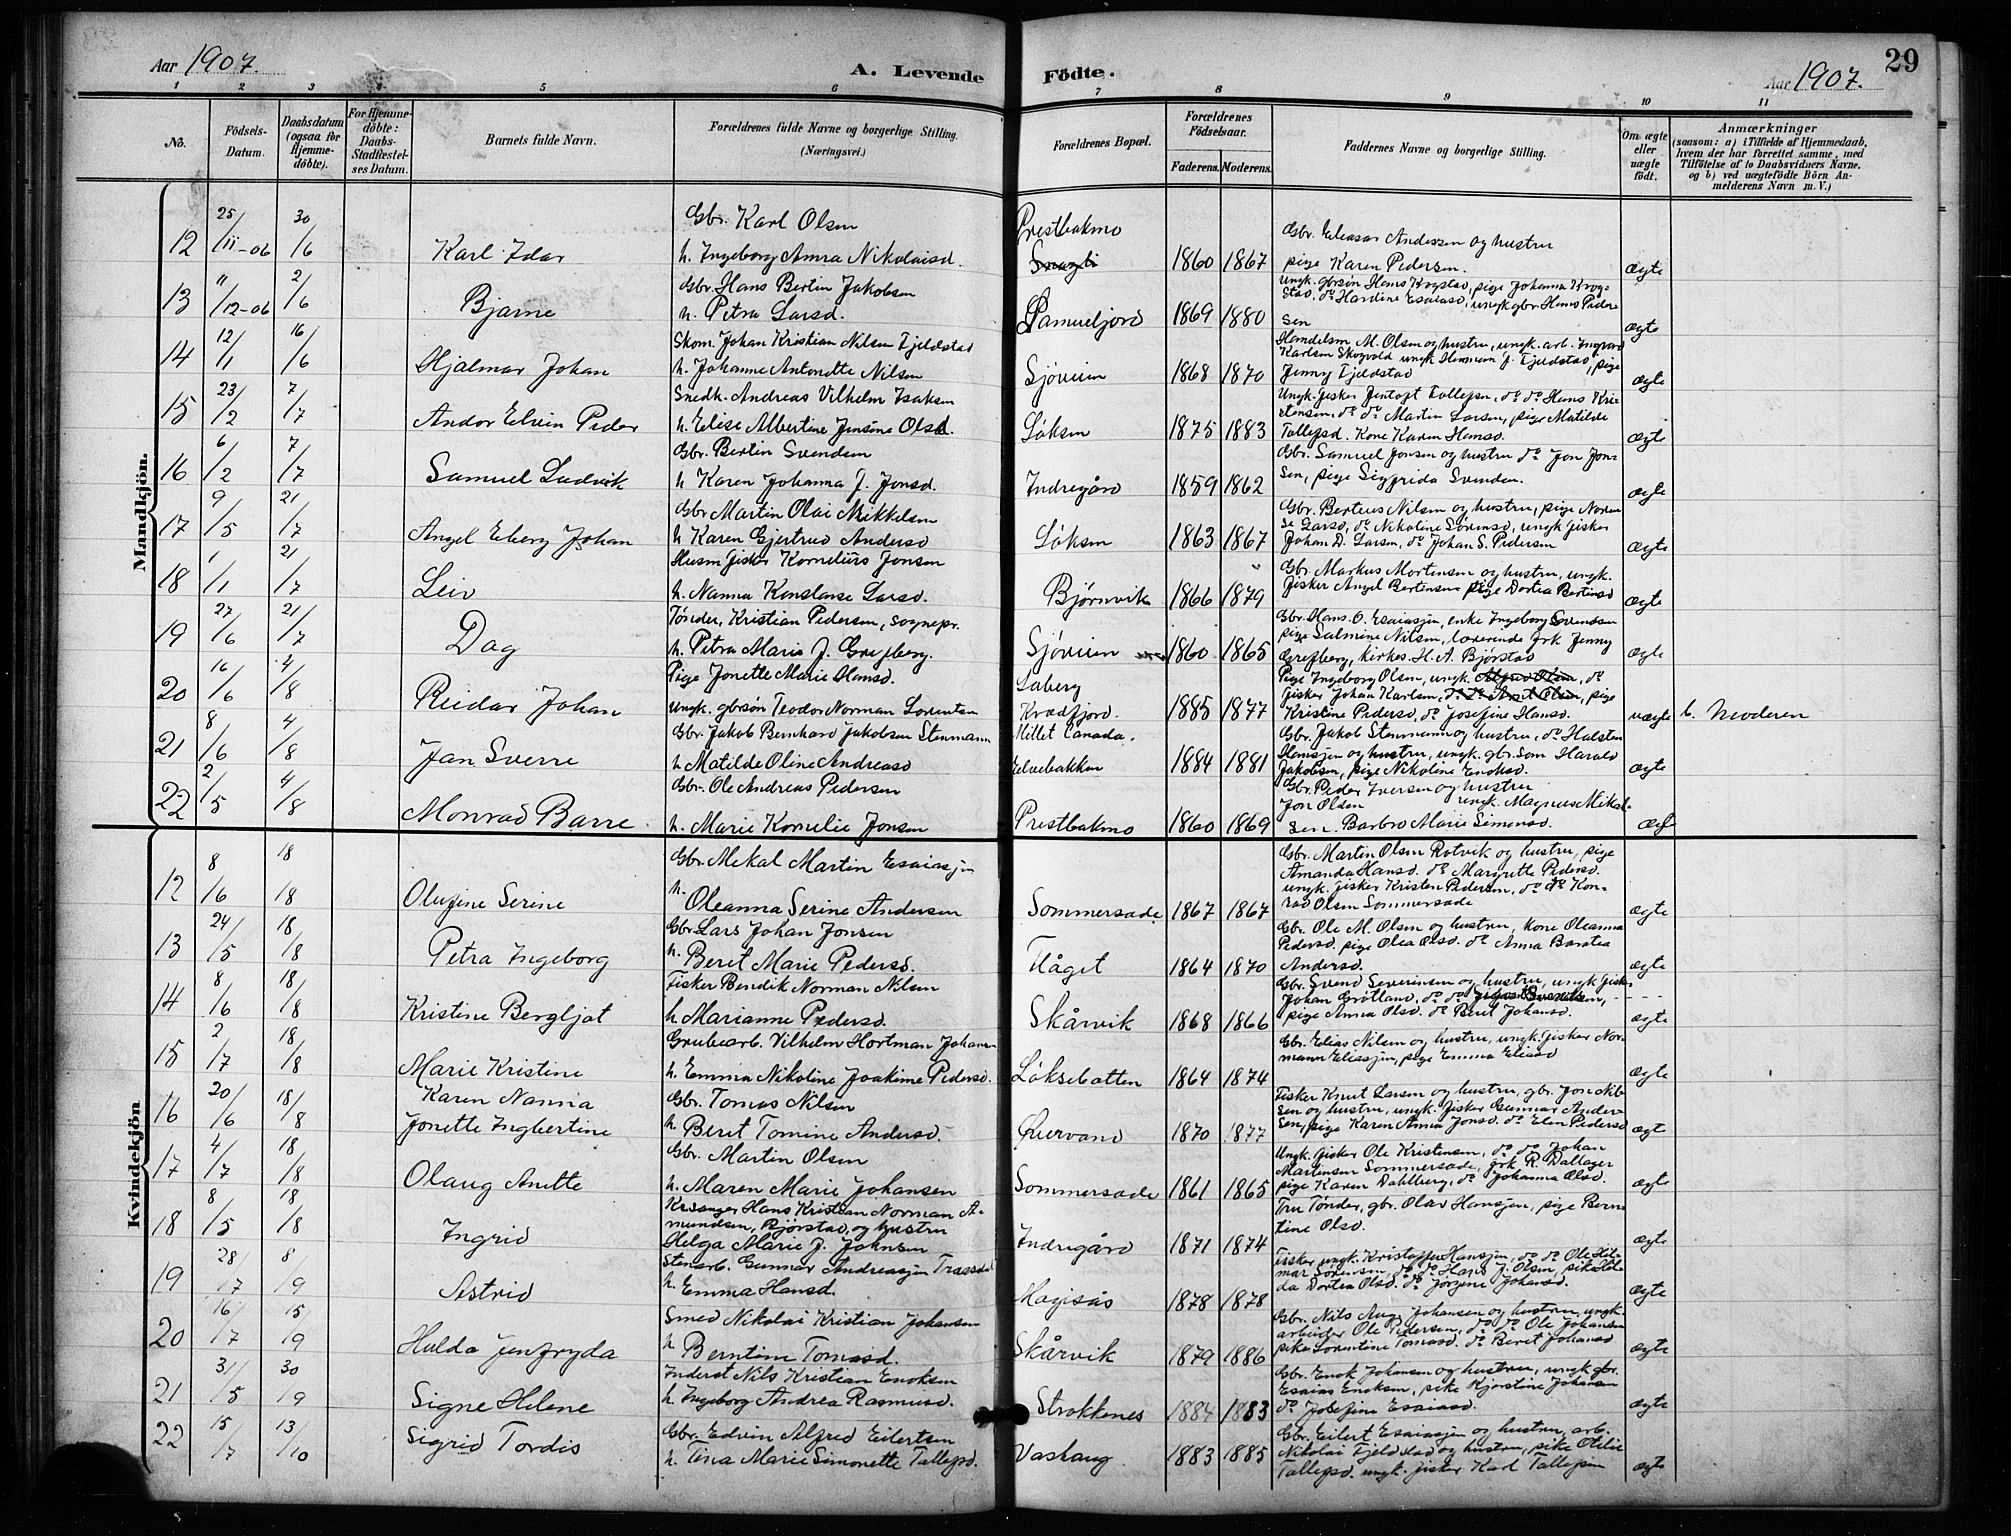 Aar 1907.
A. Levende Födte.
Aar 1907.
29
1 2 3 4 5 6 7 8 9 10 11
No.
Födsels-Datum.
Daabsdatum (ogsaa for Hjemmedöbte).
For Hjemmedöbte: Daabs-Stadfæstelses Datum.
Barnets fulde Navn.
Forældrenes fulde Navne og borgerlige Stilling. (Næringsvei.)
Forældrenes Bopæl.
Forældrenes Födselsaar.
Faderens. Moderens.
Faddernes Navne og borgerlige Stilling.
Om ægte eller uægte födt.
Anmærkninger
(saasom: a) i Tilfælde af Hjemmedaab, hvem der har forrettet samme, med Tilföielse af to Daabsvidners Navne, og b) ved uægtefödte Börn Anmelderens Navn m. V.)
Mandkjön.
12 25/11-06 30/6 Karl Idar
Gbr. Karl Olsen
h. Ingeborg Anna Nikolaisd.
Prestbakmo
1860 1867
Gbr. Eleasar Andersen og hustru
pige Karen Pedersen.
ægte
13 11/12-06 2/6 Bjarne
Gbr. Hans Bertin Jakobsen
h. Petra Larsd.
1869 1880
Ungk. gbrsön Hans Krogstad, pige Johanna Krog-
stad, do Hardine Esaiasd, ungk gbr. Hans Peder-
sen
ægte
14 12/1 16/6 Hjalmar Johan
Skom. Johan Kristian Nilsen Fjeldstad
h. Johanne Antonette Nilsen
Sjöveien
1868 1870
Handelsm. M. Olsen og hustru, ungk. arb. Ingvard
Karlsen Skogvold ungk Herman J. Fjeldstad, pige
Jenny Fjeldstad
ægte
15 23/2 7/7 Andor Elvin Peder
Snedk. Andreas Vilhelm Isaksen
h. Elise Albertine Jensine Olsd.
Löksen
1875 1883
Ungk. fisker Jentoft Tollefsen, do do Hans Kri-
stensen, do do Martin Larsen, pige Matilde
Tollefsd. Kone Karen Hansd.
ægte
16 6/2 7/7 Samuel Ludvik
Gbr. Bertin Svendsen
h Karen Johanna J. Jonsd.
Indregård
1859 1862
Gbr. Samuel Jonsen og hustru do Jon Jon-
sen, pige Sigfrida Svendsen.
ægte
17 9/5 21/7 Angel Eberg Johan
Gbr Martin Olai Mikkelsen
h Karen Gjertrud Andersd
Löksen
1863 1867
Gbr. Berteus Nilsen og hustru, pige Noren-
se Larsd, do Nikoline Sörensd, ungk fisker
Johan D. Larsen, do Johan S. Pedersen
ægte
18 1/1 21/7 Leiv
Husm fisker Kornelius Jonsen
h. Nanna Konstanse Larsd.
Bjørnvik
1866 1879
Gbr. Markus Mortensen og hustru, ungk.
fisker Angel Bertensen pige Dortea Bertinsd
ægte
19 27/6 21/7 Dag
Tønder, Kristian Pedersen, sognepr.
h. Petra Marie J. Grefberg.
Sjöveien
1860 1865
Gbr. Hans O. Esaiassen, enke Ingeborg Svendsen
pige Salmine Nilsen, lærerinde frk Jenny
Grefberg, kirkes. H. A. Bjørstad
ægte
20 16/6 4/8 Reidar Johan
Pige Jonette Marie Hansd.
ungk. gbrsön Teodor Norman Lorentsen
Laberg
Kvædfjord.
Millet Canada.
1885 1877
Pige Ingeborg Olsen, ungk. Alfred Olsen, do
fisker Johan Karlsen, do do Axel Olsen, pige
Kristine Pedersd, do Josefine Hansd.
uægte
b. Moderen
21 8/6 4/8 Jan Sverre
Gbr. Jakob Bernhard Jakobsen Stenmann
h Matilde Oline Andreasd
Elvebakken
1884 1881
Gbr. Jakob Stenmann og hustru, do Halsten
Hanssen og hustru, ungk. gbr.sön Harald
Jakobsen, pige Nikoline Enoksd.
ægte
22 2/5 4/8 Monrad Barre
Gbr. Ole Andreas Pedersen
h. Marie Kornelie Jonsen
Prestbakmo
1860 1869
Gbr. Peder Iversen og hustru
Jon Olsen ungk. Magnus Mikal-
sen. Barbro Marie Simonsd.
ægte
Kvindekjön
12 8/6 18/8 Olufine Serine
Gbr. Mekal Martin Esaiassen
h. Oleanna Serine Andersen
Sommersæde
1867 1867
Gbr. Martin Olsen Rotvik og hustru, pige
Amanda Hansd. do Margrette Pedersd.
ungk. fisker Kristen Pedersen, do do Kon-
rad Olsen Sommersæde
ægte
13 24/5 18/8 Petra Ingeborg
Gbr Lars Johan Jonsen
h. Beret Marie Pedersd.
Flåget
1864 1870
Gbr. Ole M. Olsen og hustru, kone Oleanna
Pedersd. pige Olea Olsd. do Anna Barstea
Andersd.
ægte
14 8/6 18/8 Kristine Bergljot
Fisker Bendik Norman Nilsen
h Marianne Pedersd.
Skårvik
1868 1866
Gbr. Svend Severinsen og hustru, ungk fisk.
Johan Grötland, do do
pige Anna Olsd. do Berit Johansd.
ægte
15 2/7 18/8 Marie Kristine
Grubearb. Vilhelm Hartman Johansen
h. Emma Nikoline Joakime Pedersd.
Löksebotten
1864 1874
Gbr. Elias Nilsen og hustru, ungk. fisker Nor-
mann Eliassen, pige Emma Eliasd
ægte
16 20/6 18/8 Karen Nanna
Jonette Ingbertine
Gbr. Tomas Nilsen
h. Beret Tomine Andersd.
1870 1877
Fisker Knut Larsen og hustru, gbr. Jon Nil-
sen og hustru, ungk. fisker Gunnar Ander-
sen, pige Karen Anna Jonsd. do Elen Pedersd
ægte
17 4/7 18/8 Olaug Anette
Gbr. Martin Olsen
h. Maren Marie Johansen
Sommersæde
1861 1865
Ungk. fisker Ole Kristensen, do do Johan
Martinsen Sommersæde, frk R. Dallager
pige Karen Dahlberg, do Johanna Olsd.
ægte
18 8/5 18/8 Ingrid
Kirkesanger Hans Kristian Norman A-
mundsen, Bjørstad, og hustru
Helga Marie J. Johnsen
Indregård
1871 1874
Fru Tønder, gbr. Olav Hanssen, pige Bern-
tine Olsd.
ægte
19 28/7 8/9 Astrid
Stenarb. Gunnar Andreassen
h. Emma Hansd.
1878 1878
Fisker ungk. Kristoffer Hanssen, do do Ole Hil-
mar Sörensen, do do Hans J. Olsen, pike Hil-
da Dortea Olsd. do Jörgine Johansd.
ægte
20 16/7 15/9 Hulda Jenfryda
Smed Nikolai Kristian Johansen
h Berntine Tomasd.
Skårvik
1879 1886
Gbr. Nils Aug. Johansen og hustru, ungk.
arbeider Ole Pedersen, do do Ole Johansen
pike Lorentine Tomasd. do Beret Johansd
ægte
21 31/5 30/9 Signe Helene
Inderst Nils Kristian Enoksen
h. Ingeborg Andrea Rasmusd.
Strokkenes
1884 1883
Gbr. Enok Johansen og hustru, ungk gbr.
Esaias Enoksen, pike Kjerstine Johansen
do Josefine Esaiasd.
ægte
22 15/7 13/10 Sigrid Tordis
Gbr. Edvin Alfred Eilertsen
h. Tina Marie Simonette Tollefsd.
Vashaug
1883 1885
Gbr. Eilert Esaiassen og hustru, arb.
Nikolai Fjeldstad og hustru, pike Otilie
Tollefsd. ungk. fisker Karl Tollefsen
ægte